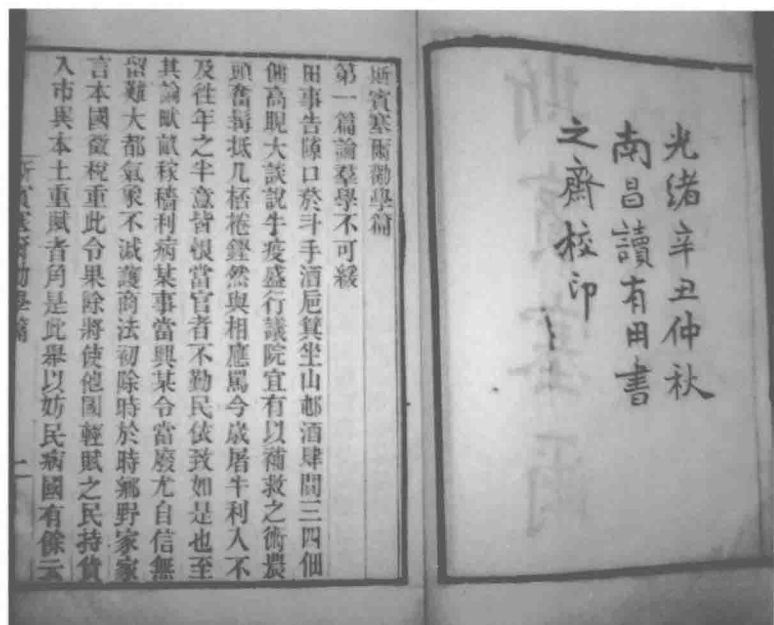 光緒辛丑仲秋
南昌讀有用書
之齋校印
斯賓塞爾勸學篇
第一篇論羣學不可緩
田事告隙口菸斗手酒巵箕坐山邨酒肆間三四佃
傭高睨大談說牛疫盛行議院宜有以補救之術農
頭奮髯抵几桮棬鏗然與相應罵今歲屠牛利入不
及往年之半意皆恨當官者不勤民依致如是也至
其論畎畝稼穡利病某事當興某令當廢尤自信無
留難大都氣象不減護商法初除時於時鄉野家家
言本國徵稅重此令果除將使他國輕賦之民持貨
入市與本土重賦者角是此舉以妨民病國有餘云
斯賓塞爾勸學篇
一
斯賓塞爾